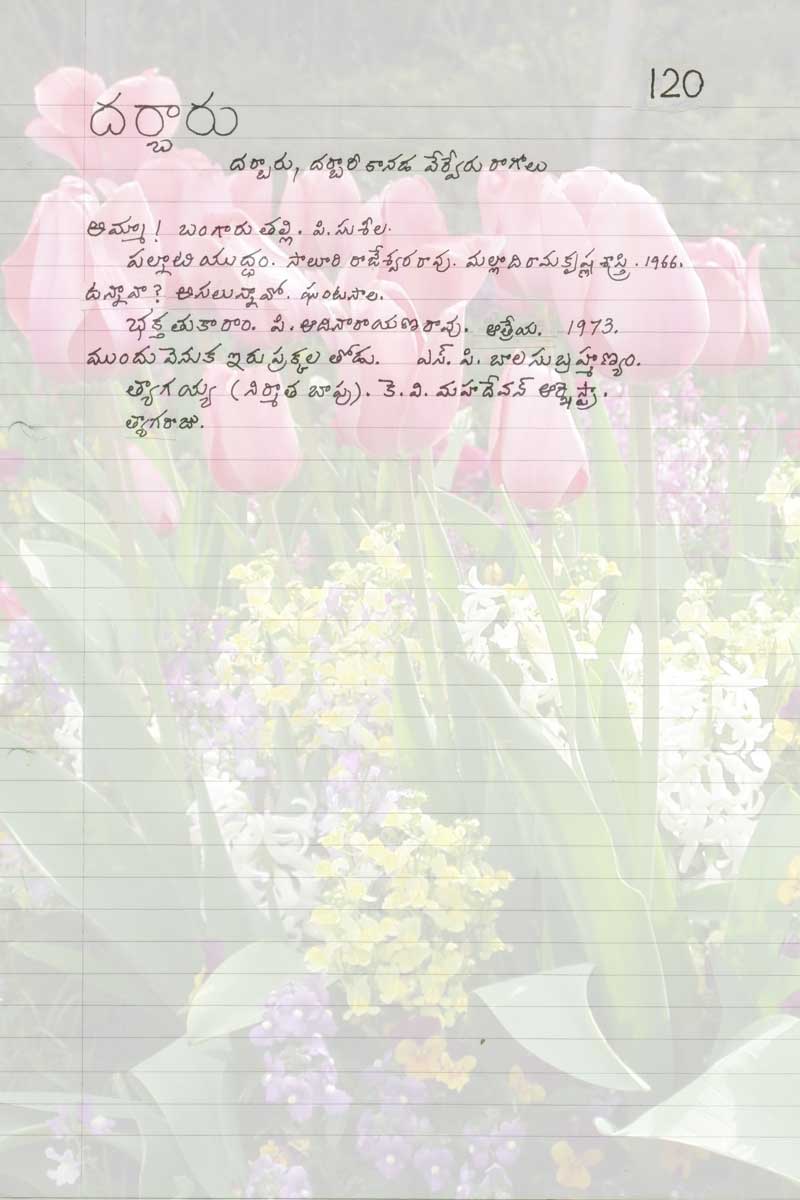 120
దర్బారు
దర్బారు, దర్బారీ కానడ వేర్వేరు రాగాలు
అమ్మా! బంగారు తల్లి. పి. సుశీల.
పల్నాటి యుద్ధం. సాలూరి రాజేశ్వరరావు. మల్లాది రామకృష్ణ శాస్త్రి. 1966.
ఉన్నావా? అసలున్నావో. ఘంటసాల.
భక్త తుకారాం. పి. ఆదినారాయణరావు. ఆత్రేయ. 1973.
ముందు వెనుక ఇరు ప్రక్కల తోడు. ఎస్. పి. బాలసుబ్రహ్మణ్యం.
త్యాగయ్య (నిర్మాత బాపు). కె. వి. మహదేవన్ ఆర్కెస్ట్రా.
త్యాగరాజు.